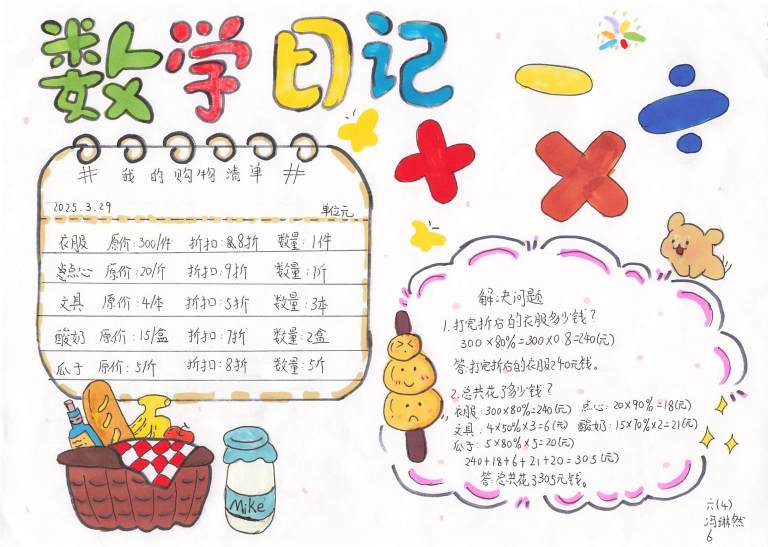 数学日记
# 我的购物清单 #
2025.3.29 单位元
衣服 原价:300/件 折扣:8折 数量:1件
点心 原价:20/斤 折扣:9折 数量:1斤
文具 原价:4/本 折扣:5折 数量:3本
酸奶 原价:15/盒 折扣:7折 数量:2盒
瓜子 原价:5/斤 折扣:8折 数量:5斤
Mike
解决问题
1.打完折后的衣服多少钱?
300×80%=300×0.8=240(元)
答:打完折后的衣服240元钱。
2.总共花了多少钱?
衣服:300×80%=240(元) 点心:20×90%=18(元)
文具:4×50%×3=6(元) 酸奶:15×70%×2=21(元)
瓜子:5×80%×5=20(元)
240+18+6+21+20=305(元)
答:总共花了305元钱。
六(4)
冯琳然
6